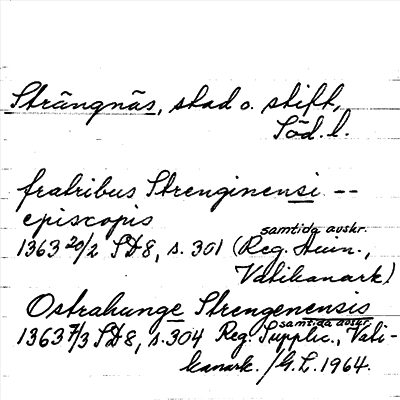 Strängnäs, stad o. stift,
Söd. l.
fratribus Strenginensi --
episcopis
samtida avskr.
1363 20/2 SD8, s. 301 (Reg. Aven.,
Vatikanark)
Ostrahunge Strengenensis
samtida avskr.
1363 7/3 SD8, s.304 Reg. Supplic., Vati-
kanark. /G.L. 1964.